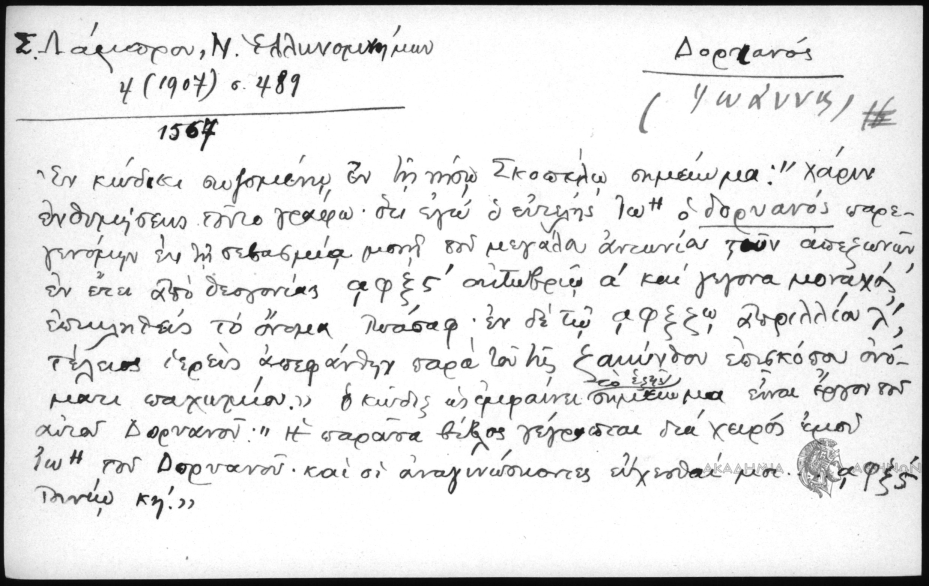 Σ. Λάμπρου, Ν. Ἑλληνομνήμων
4 (1907) σ. 489
Δορυανός
(Ἰωάννης)
1567
Ἐν κώδικι σωζομένῳ ἐν τῇ νήσῳ Σκοπέλῳ σημείωμα: "Χάριν
ἐνθυμήσεως τοῦτο γράφω· ὅτι ἐγώ ὁ εὐτελής Ἰωη ὁ δορυανός παρε-
γενόμην ἐν τῇ σεβασμίᾳ μονῇ τοῦ μεγάλου ἀντωνίου τῶν ἀπεξωνῶν
ἐν ἔτει ἀπὸ θεογονίας ͵αφξϛ΄ ὀκτωβρίῳ α΄ καί γέγονα μοναχός
ἐπικληθείς τό ὄνομα Ἰωάσαφ· ἐν δέ τῷ ͵αφξζῳ ἀπριλλίου λ΄,
τέλειος ἱερεὺς ἀπεφάνθην παρά τοῦ τῆς ζακύνθου ἐπισκόπου ὀνό-
ματι παχωμίου.» Ὁ κώδιξ ὡς ἐμφαίνει τὸ ἑξῆς σημείωμα εἶναι ἔργον τοῦ
αὐτοῦ Δορυανοῦ: "Ἡ παροῦσα βίβλος γέγραπται διά χειρός ἐμοῦ
Ἰωη τοῦ Δορυανοῦ· καὶ οἱ ἀναγινώσκοντες εὔχεσθαί μοι. ͵αφξϛ΄
Ἰουνίῳ κή.»
ΑΚΑΔΗΜΙΑ ΑΘΗΝΩΝ